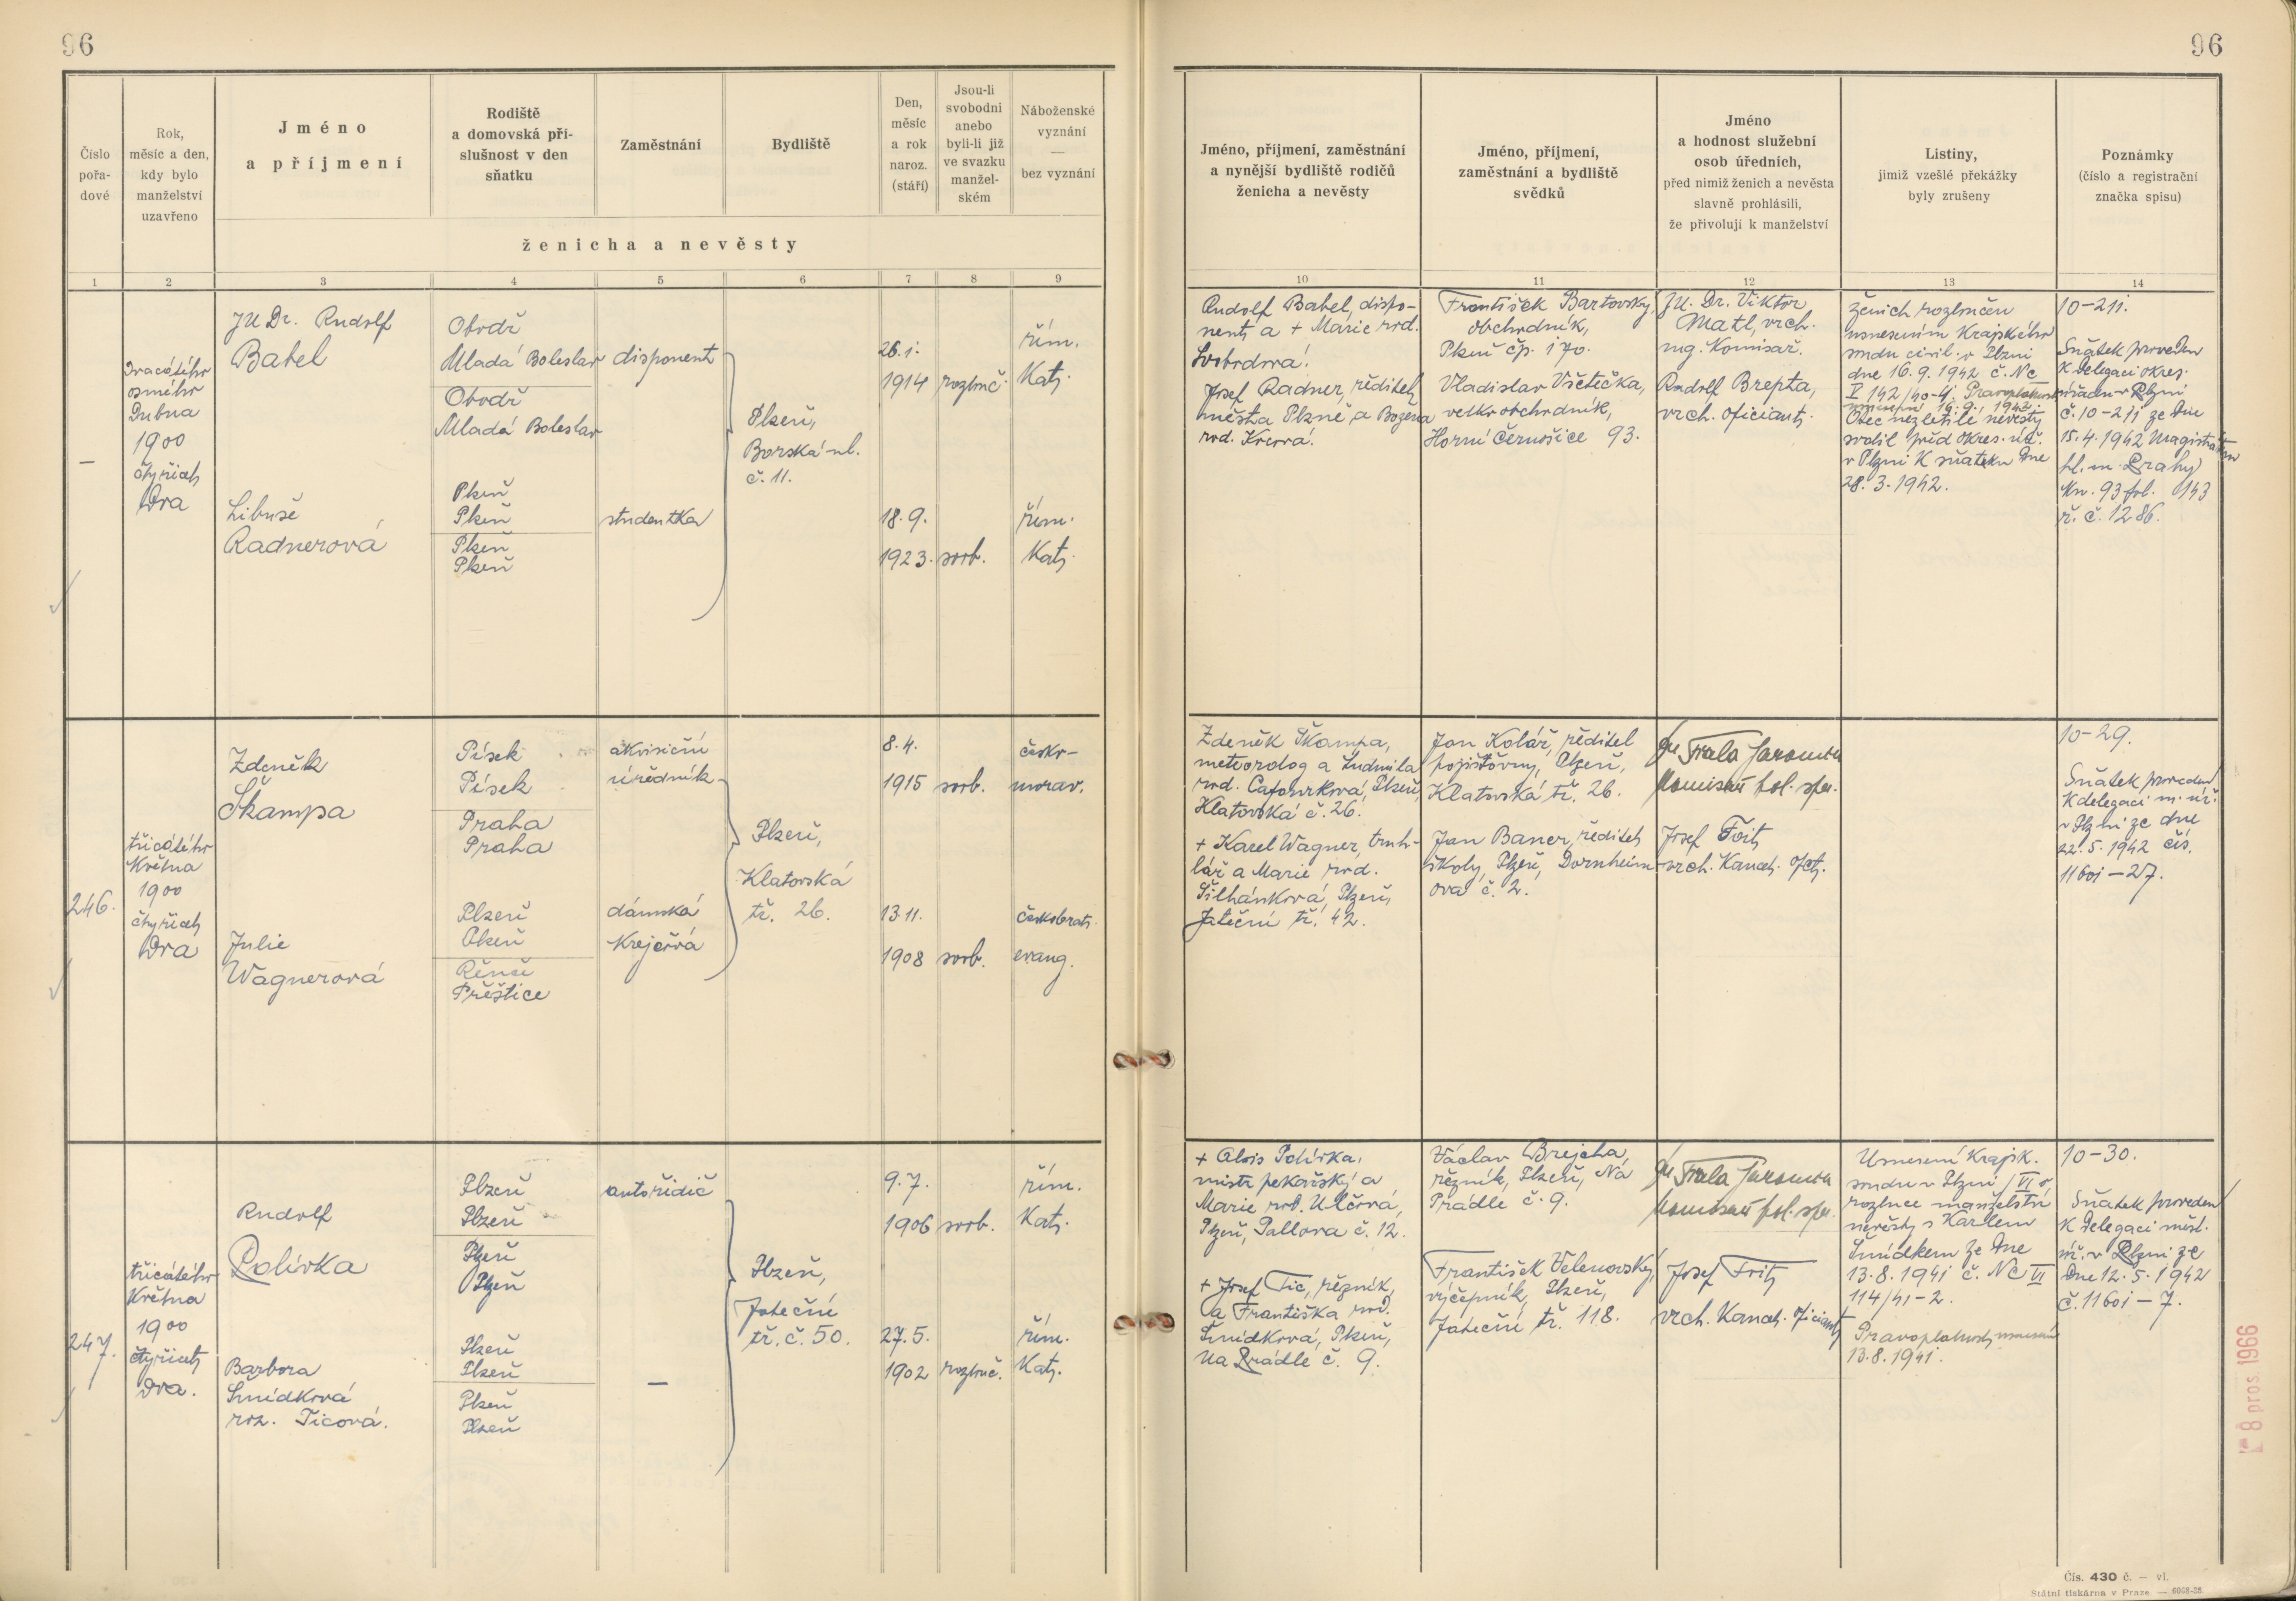 96
96
Číslo
pořa-
dové
Rok,
měsíc a den,
kdy bylo
manželství
uzavřeno
Jméno
a příjmení
Rodiště
a domovská pří-
slušnost v den
sňatku
Zaměstnání
Bydliště
Den,
měsíc
a rok
naroz.
(stáří)
Jsou-li
svobodni
anebo
byli-li již
ve svazku
manžel-
ském
Náboženské
vyznání
—
bez vyznání
ženicha a nevěsty
Jméno, příjmení, zaměstnání
a nynější bydliště rodičů
ženicha a nevěsty
Jméno, příjmení,
zaměstnání a bydliště
svědků
Jméno
a hodnost služební
osob úředních,
před nimiž ženich a nevěsta
slavně prohlásili,
že přivolují k manželství
Listiny,
jimiž vzešlé překážky
byly zrušeny
Poznámky
(číslo a registrační
značka spisu)
1 2 3 4 5 6 7 8 9
10 11 12 13 14
—
Dvacátého
osmého
Dubna
1900
čtyřicet
Dva
JUDr. Rudolf
Babel
Obodř
Mladá Boleslav
Obodř
Mladá Boleslav
disponent
Plzeň,
Borská ul.
č. 11.
26. 1.
1914
rozluč.
řím.
Kat.
Libuše
Radnerová
Plzeň
Plzeň
Plzeň
Plzeň
studentka
18. 9.
1923.
svob.
řím.
Kat.
Rudolf Babel, dispo-
nent a + Marie rod.
Svobodova.
Josef Radner, ředitel
města Plzně a Božena
rod.
František Bartovský,
obchodník,
Plzeň čp. 170.
Vladislav Všetečka,
velkoobchodník,
Horní Černošice 93.
JU. Dr. Viktor
Matl, vrch.
mg. Komisař.
Rudolf Brepta,
vrch. oficiant.
Ženich rozlučen
usnesením Krajského
soudu civil. v Plzni
dne 16. 9. 1942 č. Nc
V 142/40-4. Pravoplatnost
usnesení 16. 9. 1942.
Otec nezletilé nevěsty
svolil před okres. úř.
v Plzni K sňatku Dne
28. 3. 1942.
10-211.
Sňatek proveden
K Delegaci okres.
úřadu v Plzni
č. 10-211 ze Dne
15. 4. 1942 Magistrátem
hl. m. Prahy
Kn. 93 fol. 143
ř. č. 1286.
246.
třicátého
Května
1900
čtyřicet
Dva
Zdeněk
Škampa
Písek
Písek
Praha
Praha
akvisiční
úředník
Plzeň,
Klatovská
tř. 26.
8. 4.
1915
svob.
česko-
morav.
Julie
Wagnerová
Plzeň
Plzeň
Řenče
Přeštice
dámská
Krejčová
13. 11.
1908
svob.
českobrat.
evang.
Zdeněk Škampa,
meteorolog a Ludmila
rod. Cafourková, Plzeň,
Klatovská č. 26.
+ Karel Wagner, truh-
lář a Marie rod.
Šilhánková, Plzeň,
Jateční tř. 42.
Jan Kolář, ředitel
pojišťovny, Plzeň,
Klatovská tř. 26.
Jan Baner, ředitel
školy, Plzeň, Dornheim-
ova č. 2.
Jaromír
komisař pol. spr.
Josef
vrch. Kancel. ofic.
10-29.
Sňatek proveden
K delegaci m. úř.
v Plzni ze dne
22. 5. 1942 čís.
11601-27.
247.
třicátého
Května
1900
čtyřicet
Dva.
Rudolf
Polívka
Plzeň
Plzeň
Plzeň
Plzeň
autořidič
Plzeň,
Jateční
tř. č. 50.
9. 7.
1906
svob.
řím.
Kat.
Barbora
Šmídková
roz. Ticová.
Plzeň
Plzeň
Plzeň
Plzeň
—
27. 5.
1902
rozluč.
řím.
Kat.
+ Alois Polívka,
mistr pekařský a
Marie rod. Ulčová,
Plzeň, Pallova č. 12.
+ Josef Tic, řezník,
a Františka rod.
Šmídková, Plzeň,
Na Prádle č. 9.
Václav Brejcha,
řezník, Plzeň, Na
Prádle č. 9.
František Velenovský,
výčepník, Plzeň,
Jateční tř. 118.
Jaromír
komisař pol. spr.
Josef
vrch. Kancel. oficiant
Usnesení Krajsk.
soudu v Plzni /VI o
rozluce manželství
nevěsty s Karlem
Šmídkem ze Dne
13. 8. 1941 č. Nc VI
114/41-2.
Pravoplatnost usnesení
13. 8. 1941.
10-30.
Sňatek proveden
K Delegaci měst.
úř. v Plzni ze
Dne 12. 5. 1942
č. 11601-7.
8 pros. 1966
Čís. 430 č. — vl.
Státní tiskárna v Praze. — 6068-38